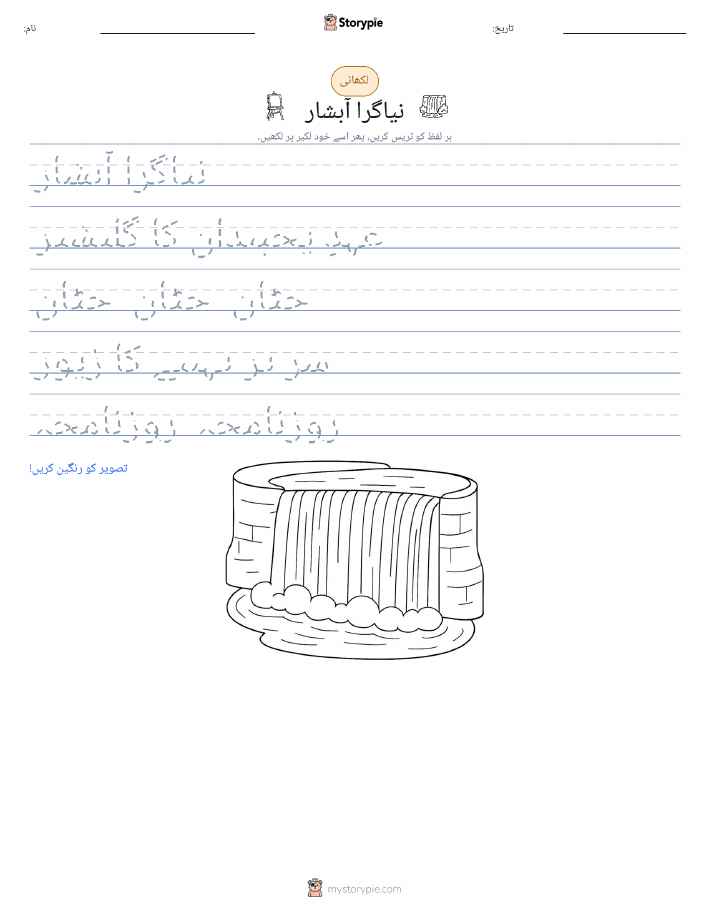 نام:
Storypie
تاریخ:
لکھائی
نیاگرا آبشار
ہر لفظ کو ٹریس کریں، پھر اسے خود لکیر پر لکھیں۔
نیاگرا آبشار
عہدِ یخبندان کا گلیشیر
چٹان چٹان چٹان
سر نر نہیے کا زیور
روزنامچہ روزنامچہ
تصویر کو رنگین کریں!
mystorypie.com